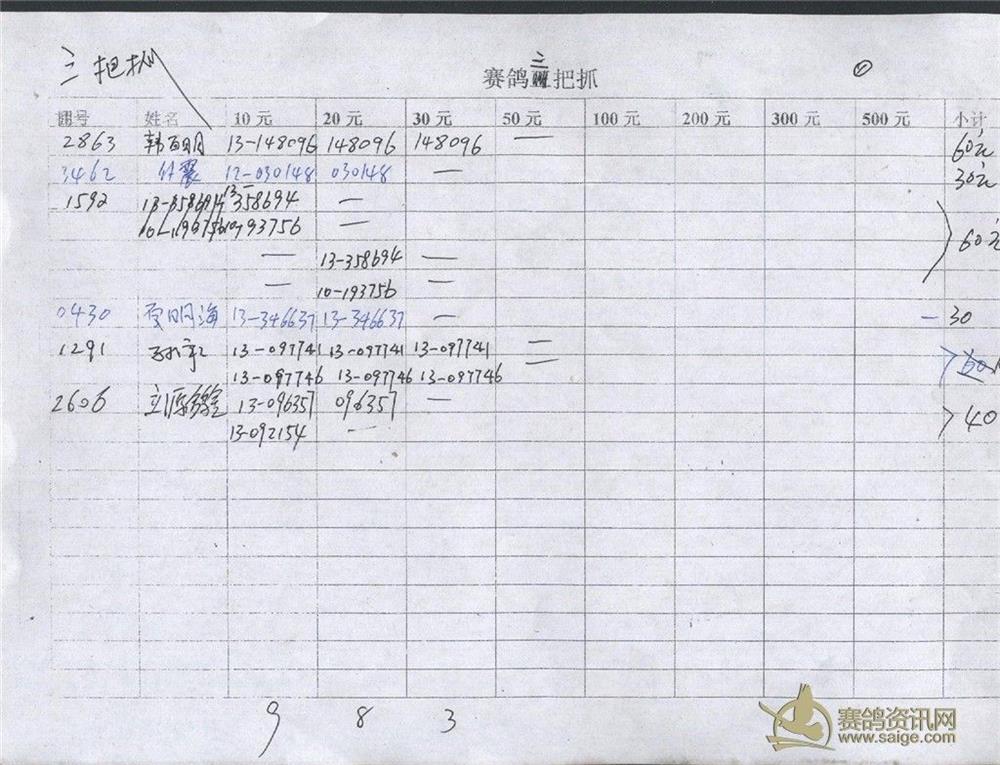 三把抓
赛鸽三把抓 ①
棚号 姓名 10 元 20 元 30 元 50 元 100 元 200 元 300 元 500 元 小计
2863 韩百明 13-148096 148096 148096 — 60元
3462 付震 12-030148 030148 — 30元
1592 13-358694 13-358694 —
10-193756 10-193756 —
— 13-358694 — 60元
— 10-193756 —
0430 贾明海 13-346637 13-346637 — — 30
1291 13-097741 13-097741 13-097741 —
13-097746 13-097746 13-097746 —
2606 13-096357 096357 — 40
13-092154 —
9 8 3
赛鸽资讯网
www.saige.com